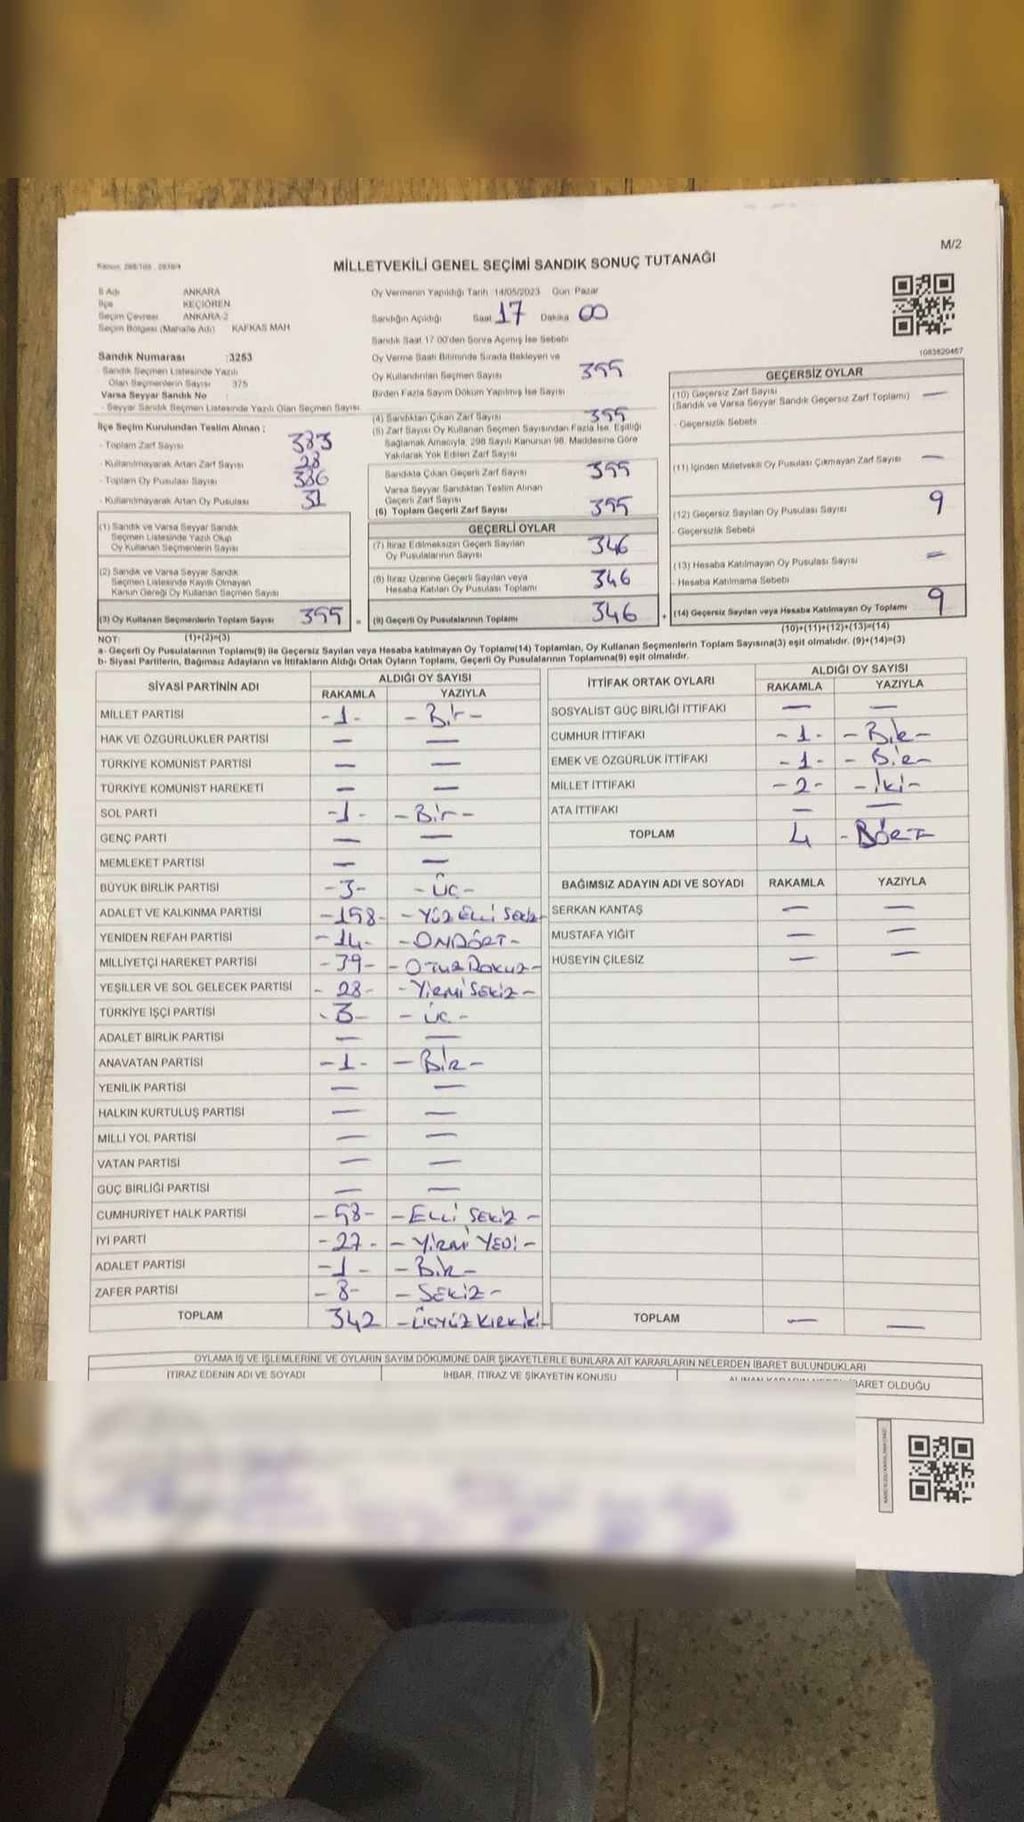 M/2
MİLLETVEKİLİ GENEL SEÇİMİ SANDIK SONUÇ TUTANAĞI
İl Adı ANKARA
İlçe KEÇİÖREN
Seçim Çevresi ANKARA-2
Seçim Bölgesi (Mahalle Adı) KAFKAS MAH
Sandık Numarası :3253
Sandık Seçmen Listesinde Yazılı
Olan Seçmenlerin Sayısı 375
Varsa Seyyar Sandık No
- Seyyar Sandık Seçmen Listesinde Yazılı Olan Seçmen Sayısı
İlçe Seçim Kurulundan Teslim Alınan :
- Toplam Zarf Sayısı 383
- Kullanılmayarak Artan Zarf Sayısı 28
- Toplam Oy Pusulası Sayısı 386
- Kullanılmayarak Artan Oy Pusulası 31
(1) Sandık ve Varsa Seyyar Sandık
Seçmen Listesinde Yazılı Olup
Oy Kullanan Seçmenlerin Sayısı
(2) Sandık ve Varsa Seyyar Sandık
Seçmen Listesinde Kayıtlı Olmayan
Kanun Gereği Oy Kullanan Seçmen Sayısı
(3) Oy Kullanan Seçmenlerin Toplam Sayısı 355 =
(1)+(2)=(3)
Oy Vermenin Yapıldığı Tarih 14/05/2023 Gün Pazar
Sandığın Açıldığı Saat 17 Dakika 00
Sandık Saat 17 00'den Sonra Açımış İse Sebebi
Oy Verme Saati Bitiminde Sırada Bekleyen ve
Oy Kullandırılan Seçmen Sayısı 355
Birden Fazla Sayım Döküm Yapılmış İse Sayısı
(4) Sandıktan Çıkan Zarf Sayısı 355
(5) Zarf Sayısı Oy Kullanan Seçmen Sayısından Fazla İse, Eşitliği
Sağlamak Amacıyla, 298 Sayılı Kanunun 98. Maddesine Göre
Yakılarak Yok Edilen Zarf Sayısı
Sandıkta Çıkan Geçerli Zarf Sayısı 355
Varsa Seyyar Sandıktan Teslim Alınan
Geçerli Zarf Sayısı
(6) Toplam Geçerli Zarf Sayısı 355
GEÇERLİ OYLAR
(7) İtiraz Edilmeksizin Geçerli Sayılan
Oy Pusulalarının Sayısı 346
(8) İtiraz Üzerine Geçerli Sayılan veya
Hesaba Katılan Oy Pusulası Toplamı 346
(9) Geçerli Oy Pusulalarının Toplamı 346 +
1083820467
GEÇERSİZ OYLAR
(10) Geçersiz Zarf Sayısı —
(Sandık ve Varsa Seyyar Sandık Geçersiz Zarf Toplamı)
- Geçersizlik Sebebi
(11) İçinden Milletvekili Oy Pusulası Çıkmayan Zarf Sayısı —
(12) Geçersiz Sayılan Oy Pusulası Sayısı 9
- Geçersizlik Sebebi
(13) Hesaba Katılmayan Oy Pusulası Sayısı —
- Hesaba Katılmama Sebebi
(14) Geçersiz Sayılan veya Hesaba Katılmayan Oy Toplamı 9
(10)+(11)+(12)+(13)=(14)
NOT:
a- Geçerli Oy Pusulalarının Toplamı(9) ile Geçersiz Sayılan veya Hesaba katılmayan Oy Toplamı(14) Toplamları, Oy Kullanan Seçmenlerin Toplam Sayısına(3) eşit olmalıdır. (9)+(14)=(3)
b- Siyasi Partilerin, Bağımsız Adayların ve İttifakların Aldığı Ortak Oyların Toplamı, Geçerli Oy Pusulalarının Toplamına(9) eşit olmalıdır.
SİYASİ PARTİNİN ADI ALDIĞI OY SAYISI
RAKAMLA YAZIYLA
MİLLET PARTİSİ -1- -Bir-
HAK VE ÖZGÜRLÜKLER PARTİSİ — —
TÜRKİYE KOMÜNİST PARTİSİ — —
TÜRKİYE KOMÜNİST HAREKETİ — —
SOL PARTİ -1- -Bir-
GENÇ PARTİ — —
MEMLEKET PARTİSİ — —
BÜYÜK BİRLİK PARTİSİ -3- -ÜÇ-
ADALET VE KALKINMA PARTİSİ -158- -YÜZ ELLİ SEKİZ-
YENİDEN REFAH PARTİSİ -14- -ONDÖRT-
MİLLİYETÇİ HAREKET PARTİSİ -39- -OTUZ DOKUZ-
YEŞİLLER VE SOL GELECEK PARTİSİ -28- -YİRMİ SEKİZ-
TÜRKİYE İŞÇİ PARTİSİ -3- -ÜÇ-
ADALET BİRLİK PARTİSİ — —
ANAVATAN PARTİSİ -1- -BİR-
YENİLİK PARTİSİ — —
HALKIN KURTULUŞ PARTİSİ — —
MİLLİ YOL PARTİSİ — —
VATAN PARTİSİ — —
GÜÇ BİRLİĞİ PARTİSİ — —
CUMHURİYET HALK PARTİSİ -58- -ELLİ SEKİZ-
İYİ PARTİ -27- -YİRMİ YEDİ-
ADALET PARTİSİ -1- -BİR-
ZAFER PARTİSİ -8- -SEKİZ-
TOPLAM 342 -ÜÇYÜZ KIRK İKİ-
İTTİFAK ORTAK OYLARI ALDIĞI OY SAYISI
RAKAMLA YAZIYLA
SOSYALİST GÜÇ BİRLİĞİ İTTİFAKI — —
CUMHUR İTTİFAKI -1- -BİR-
EMEK VE ÖZGÜRLÜK İTTİFAKI -1- -BİR-
MİLLET İTTİFAKI -2- -İKİ-
ATA İTTİFAKI — —
TOPLAM 4 -DÖRT-
BAĞIMSIZ ADAYIN ADI VE SOYADI RAKAMLA YAZIYLA
SERKAN KANTAŞ — —
MUSTAFA YİĞİT — —
HÜSEYİN ÇİLESİZ — —
TOPLAM — —
OYLAMA İŞ VE İŞLEMLERİNE VE OYLARIN SAYIM DÖKÜMÜNE DAİR ŞİKAYETLERLE BUNLARA AİT KARARLARIN NELERDEN İBARET BULUNDUKLARI
İTİRAZ EDENİN ADI VE SOYADI İHBAR, İTİRAZ VE ŞİKAYETİN KONUSU